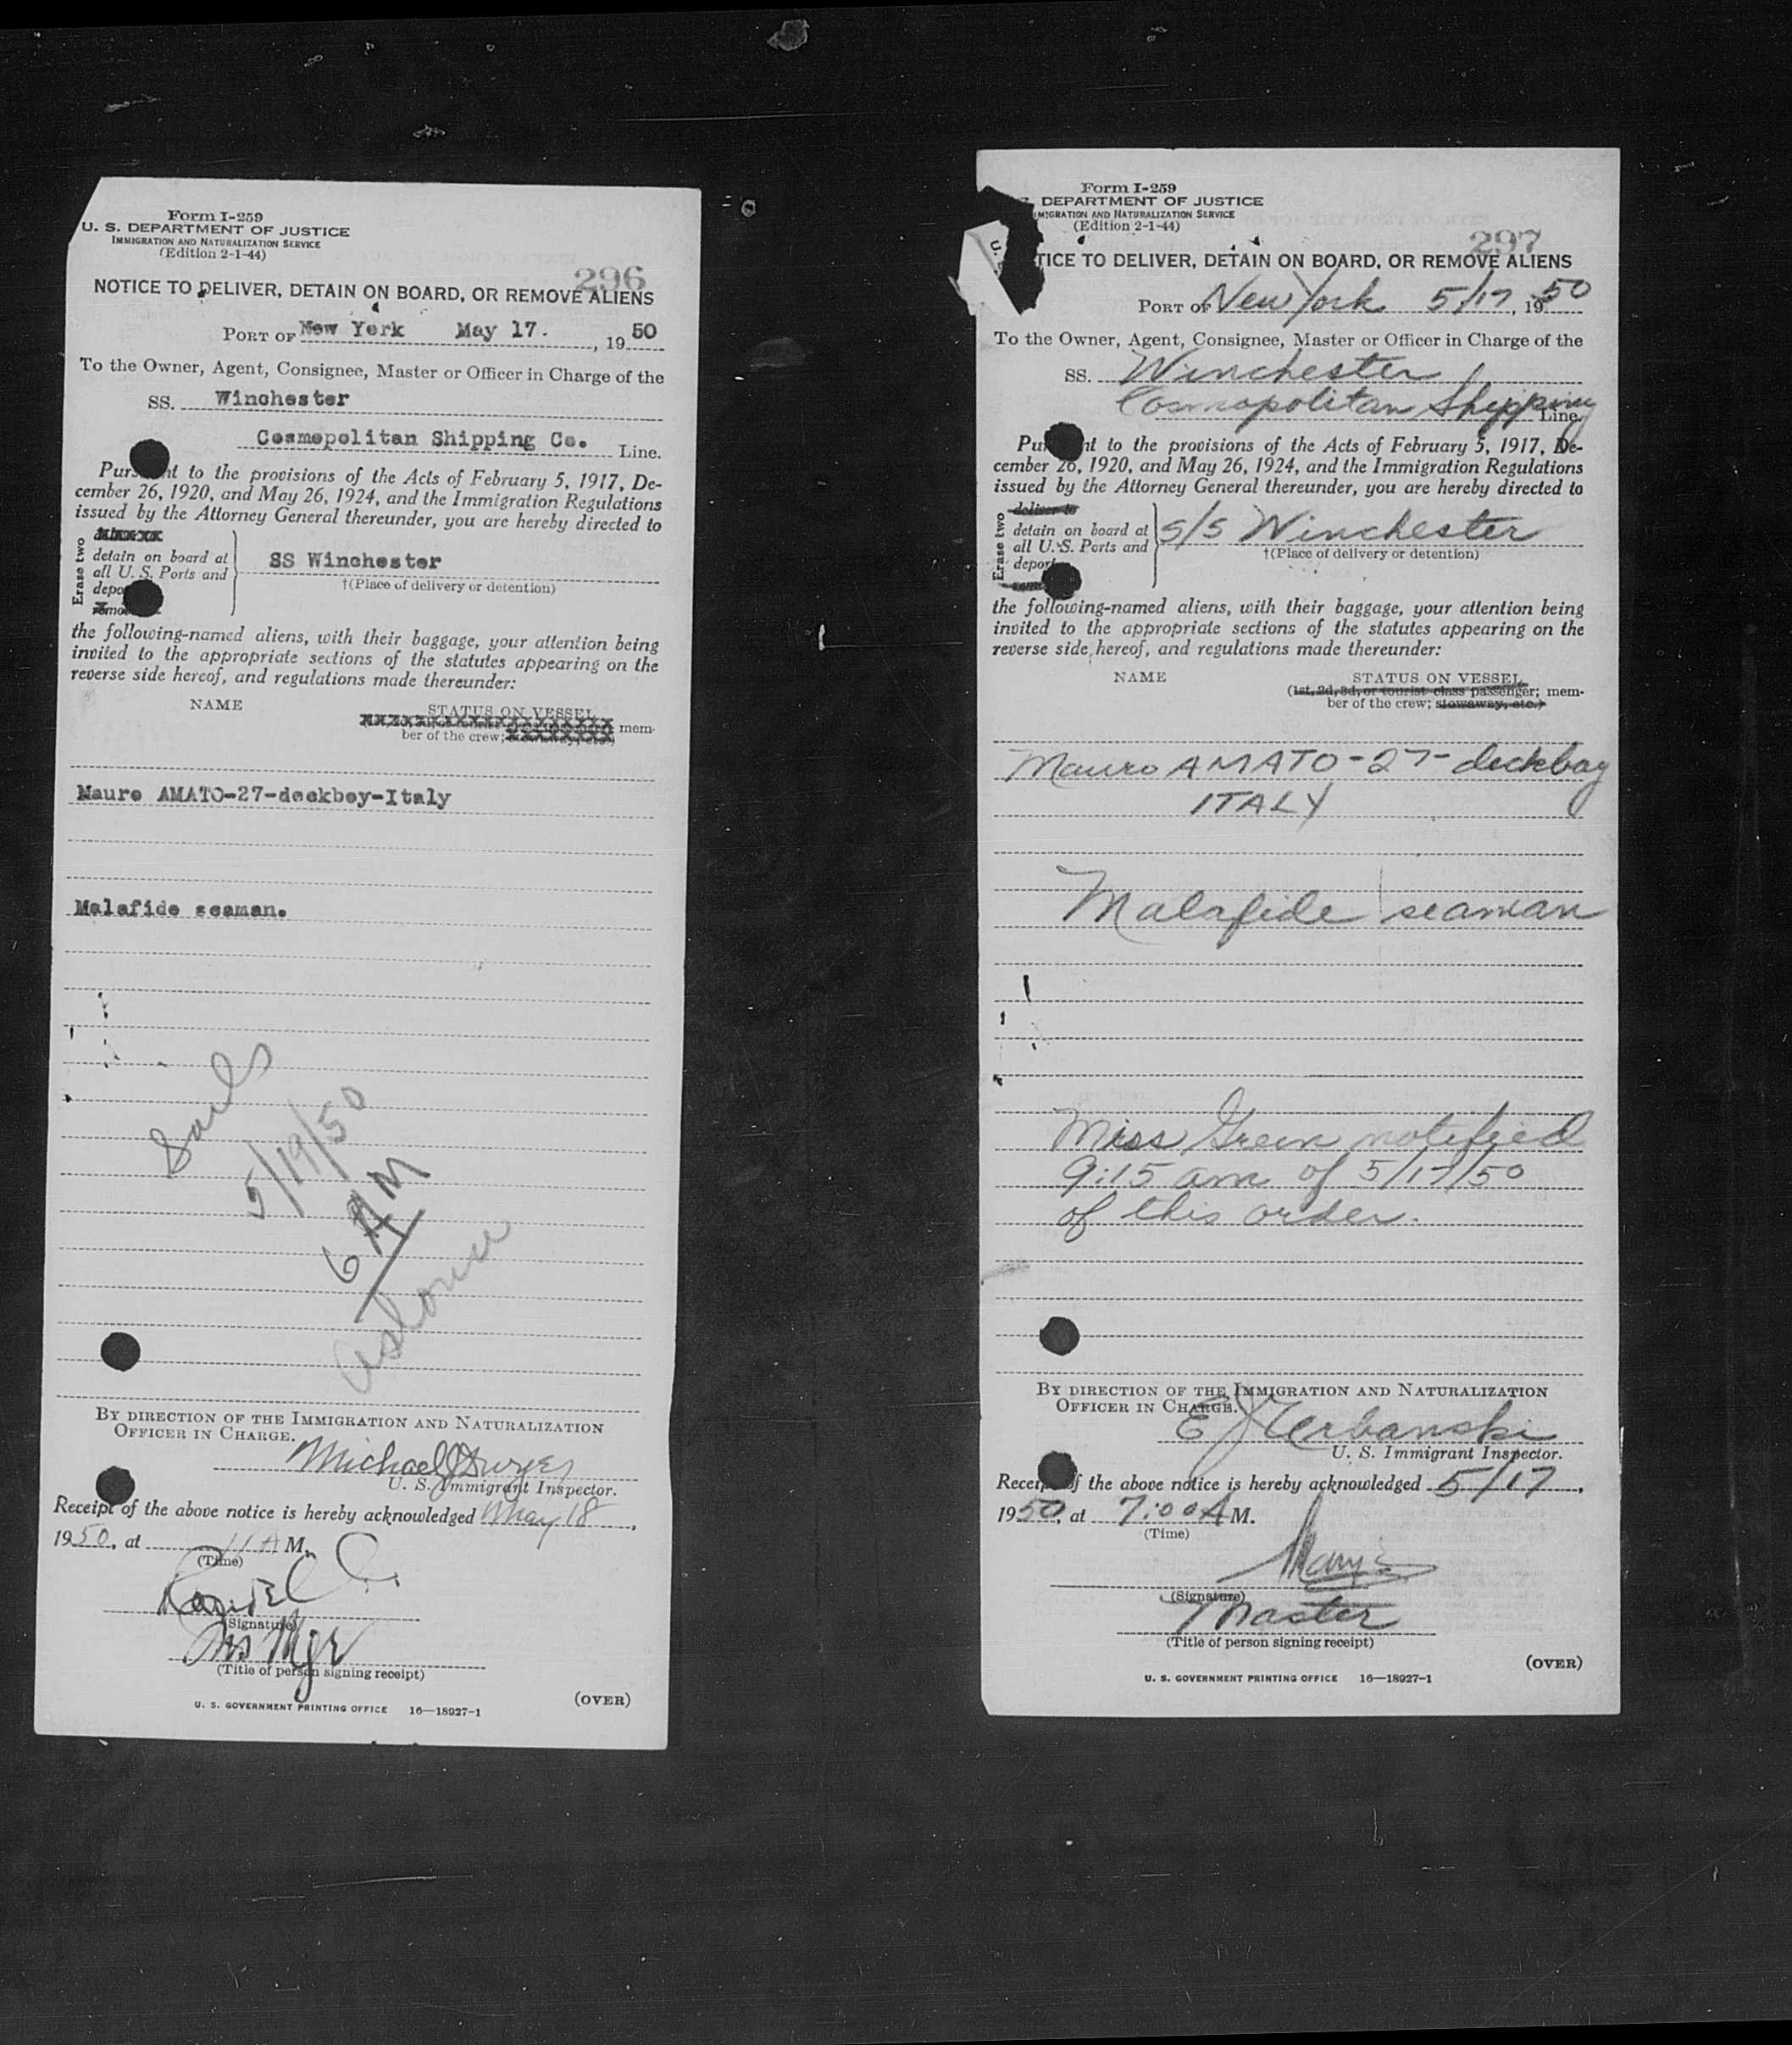 Form I-259
U. S. DEPARTMENT OF JUSTICE
IMMIGRATION AND NATURALIZATION SERVICE
(Edition 2-1-44)
296
NOTICE TO DELIVER, DETAIN ON BOARD, OR REMOVE ALIENS
PORT OF New York May 17. , 19 50
To the Owner, Agent, Consignee, Master or Officer in Charge of the
SS. Winchester
Cosmopolitan Shipping Co. Line.
Purs nt to the provisions of the Acts of February 5, 1917, De-
cember 26, 1920, and May 26, 1924, and the Immigration Regulations
issued by the Attorney General thereunder, you are hereby directed to
Erase two
detain on board at
all U. S. Ports and
depo
remo
SS Winchester
†(Place of delivery or detention)
the following-named aliens, with their baggage, your attention being
invited to the appropriate sections of the statutes appearing on the
reverse side hereof, and regulations made thereunder:
NAME STATUS ON VESSEL
mem-
ber of the crew; stowaway, etc.)
Mauro AMATO-27-deckboy-Italy
Malafide seaman.
Sails
5/19/50
6 AM
BY DIRECTION OF THE IMMIGRATION AND NATURALIZATION
OFFICER IN CHARGE.
Michael J Dwyer
U. S. Immigrant Inspector.
Receipt of the above notice is hereby acknowledged May 18 ,
1950, at 11 A M.
(Time)
(Signature)
(Title of person signing receipt)
U. S. GOVERNMENT PRINTING OFFICE 16—18927-1
(OVER)
Form I-259
DEPARTMENT OF JUSTICE
MIGRATION AND NATURALIZATION SERVICE
(Edition 2-1-44)
297
TICE TO DELIVER, DETAIN ON BOARD, OR REMOVE ALIENS
PORT OF New York 5/17, 1950
To the Owner, Agent, Consignee, Master or Officer in Charge of the
SS. Winchester
Cosmopolitan Shipping Line.
Pu nt to the provisions of the Acts of February 5, 1917, De-
cember 26, 1920, and May 26, 1924, and the Immigration Regulations
issued by the Attorney General thereunder, you are hereby directed to
Erase two
deliver to
detain on board at
all U. S. Ports and
depor
S/S Winchester
†(Place of delivery or detention)
the following-named aliens, with their baggage, your attention being
invited to the appropriate sections of the statutes appearing on the
reverse side hereof, and regulations made thereunder:
NAME STATUS ON VESSEL
(1st, 2d, 3d, or tourist class passenger; mem-
ber of the crew; stowaway, etc.)
Mauro AMATO-27-deckboy
ITALY
Malafide seaman
Miss Green notified
9:15 am of 5/17/50
of this order.
BY DIRECTION OF THE IMMIGRATION AND NATURALIZATION
OFFICER IN CHARGE.
E J Urbanski
U. S. Immigrant Inspector.
Receip of the above notice is hereby acknowledged 5/17 ,
1950, at 7:00 A M.
(Time)
(Signature)
Master
(Title of person signing receipt)
(OVER)
U. S. GOVERNMENT PRINTING OFFICE 16—18927-1